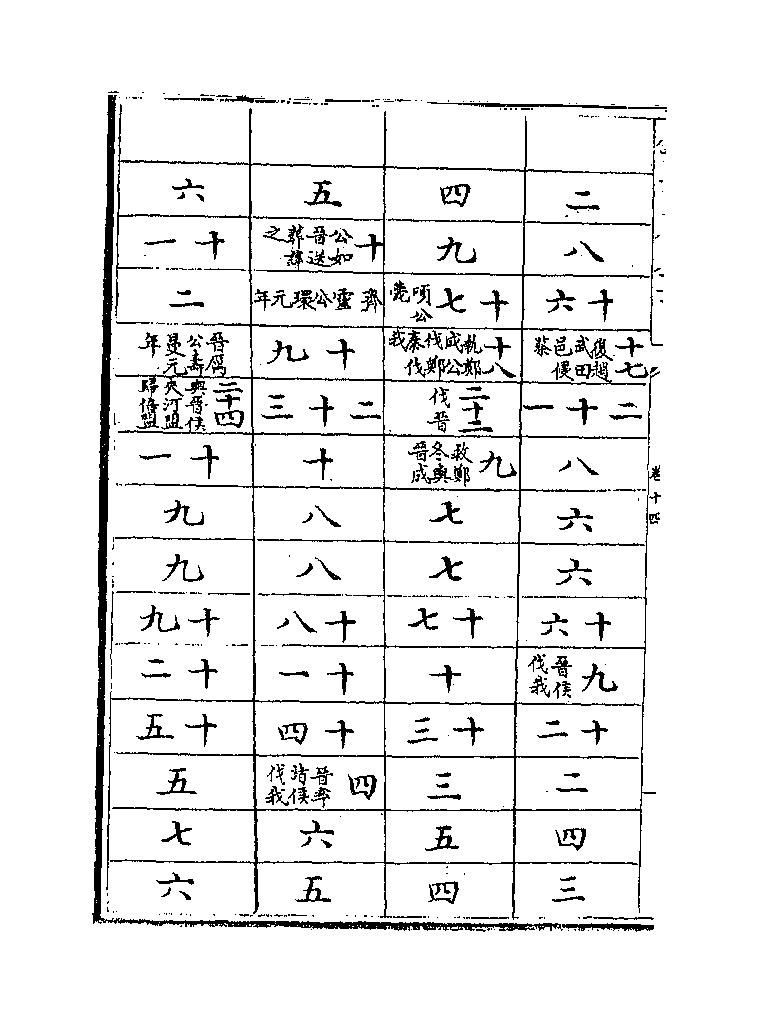 卷十四
二
八
十六
十七 復趙武田邑侵蔡
二十一
八
六
六
十六
九 晉侯伐我
十二
二
四
三
四
九
十七 頃公薨
十八 執鄭成公伐鄭秦伐我
二十二 伐晉
九 救鄭冬與晉成
七
七
十七
十
十三
三
五
四
五
十 公如晉送葬諱之
齊靈公環元年
十九
二十三
十
八
八
十八
十一
十四
四 晉率諸侯伐我
六
五
六
十一
二
晉厲公壽曼元年
二十四 與晉侯夾河盟歸倍盟
十一
九
九
十九
十二
十五
五
七
六